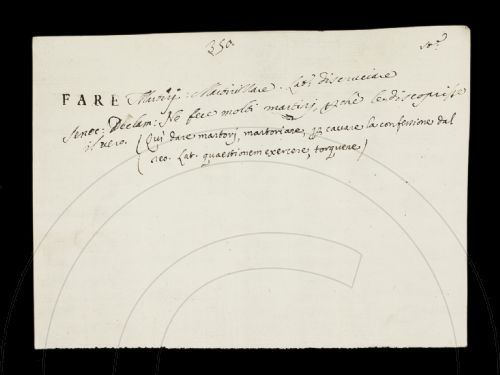 350.
FARE Martirj. Martirizzare. Lat. discruciare
Senec: Declam: Ne fece molti martirj, perchè le discoprisse
il vero. (Qui dare martorj, martoriare, per cavare la confessione dal
reo. Lat. quaestionem exercere, torquere)